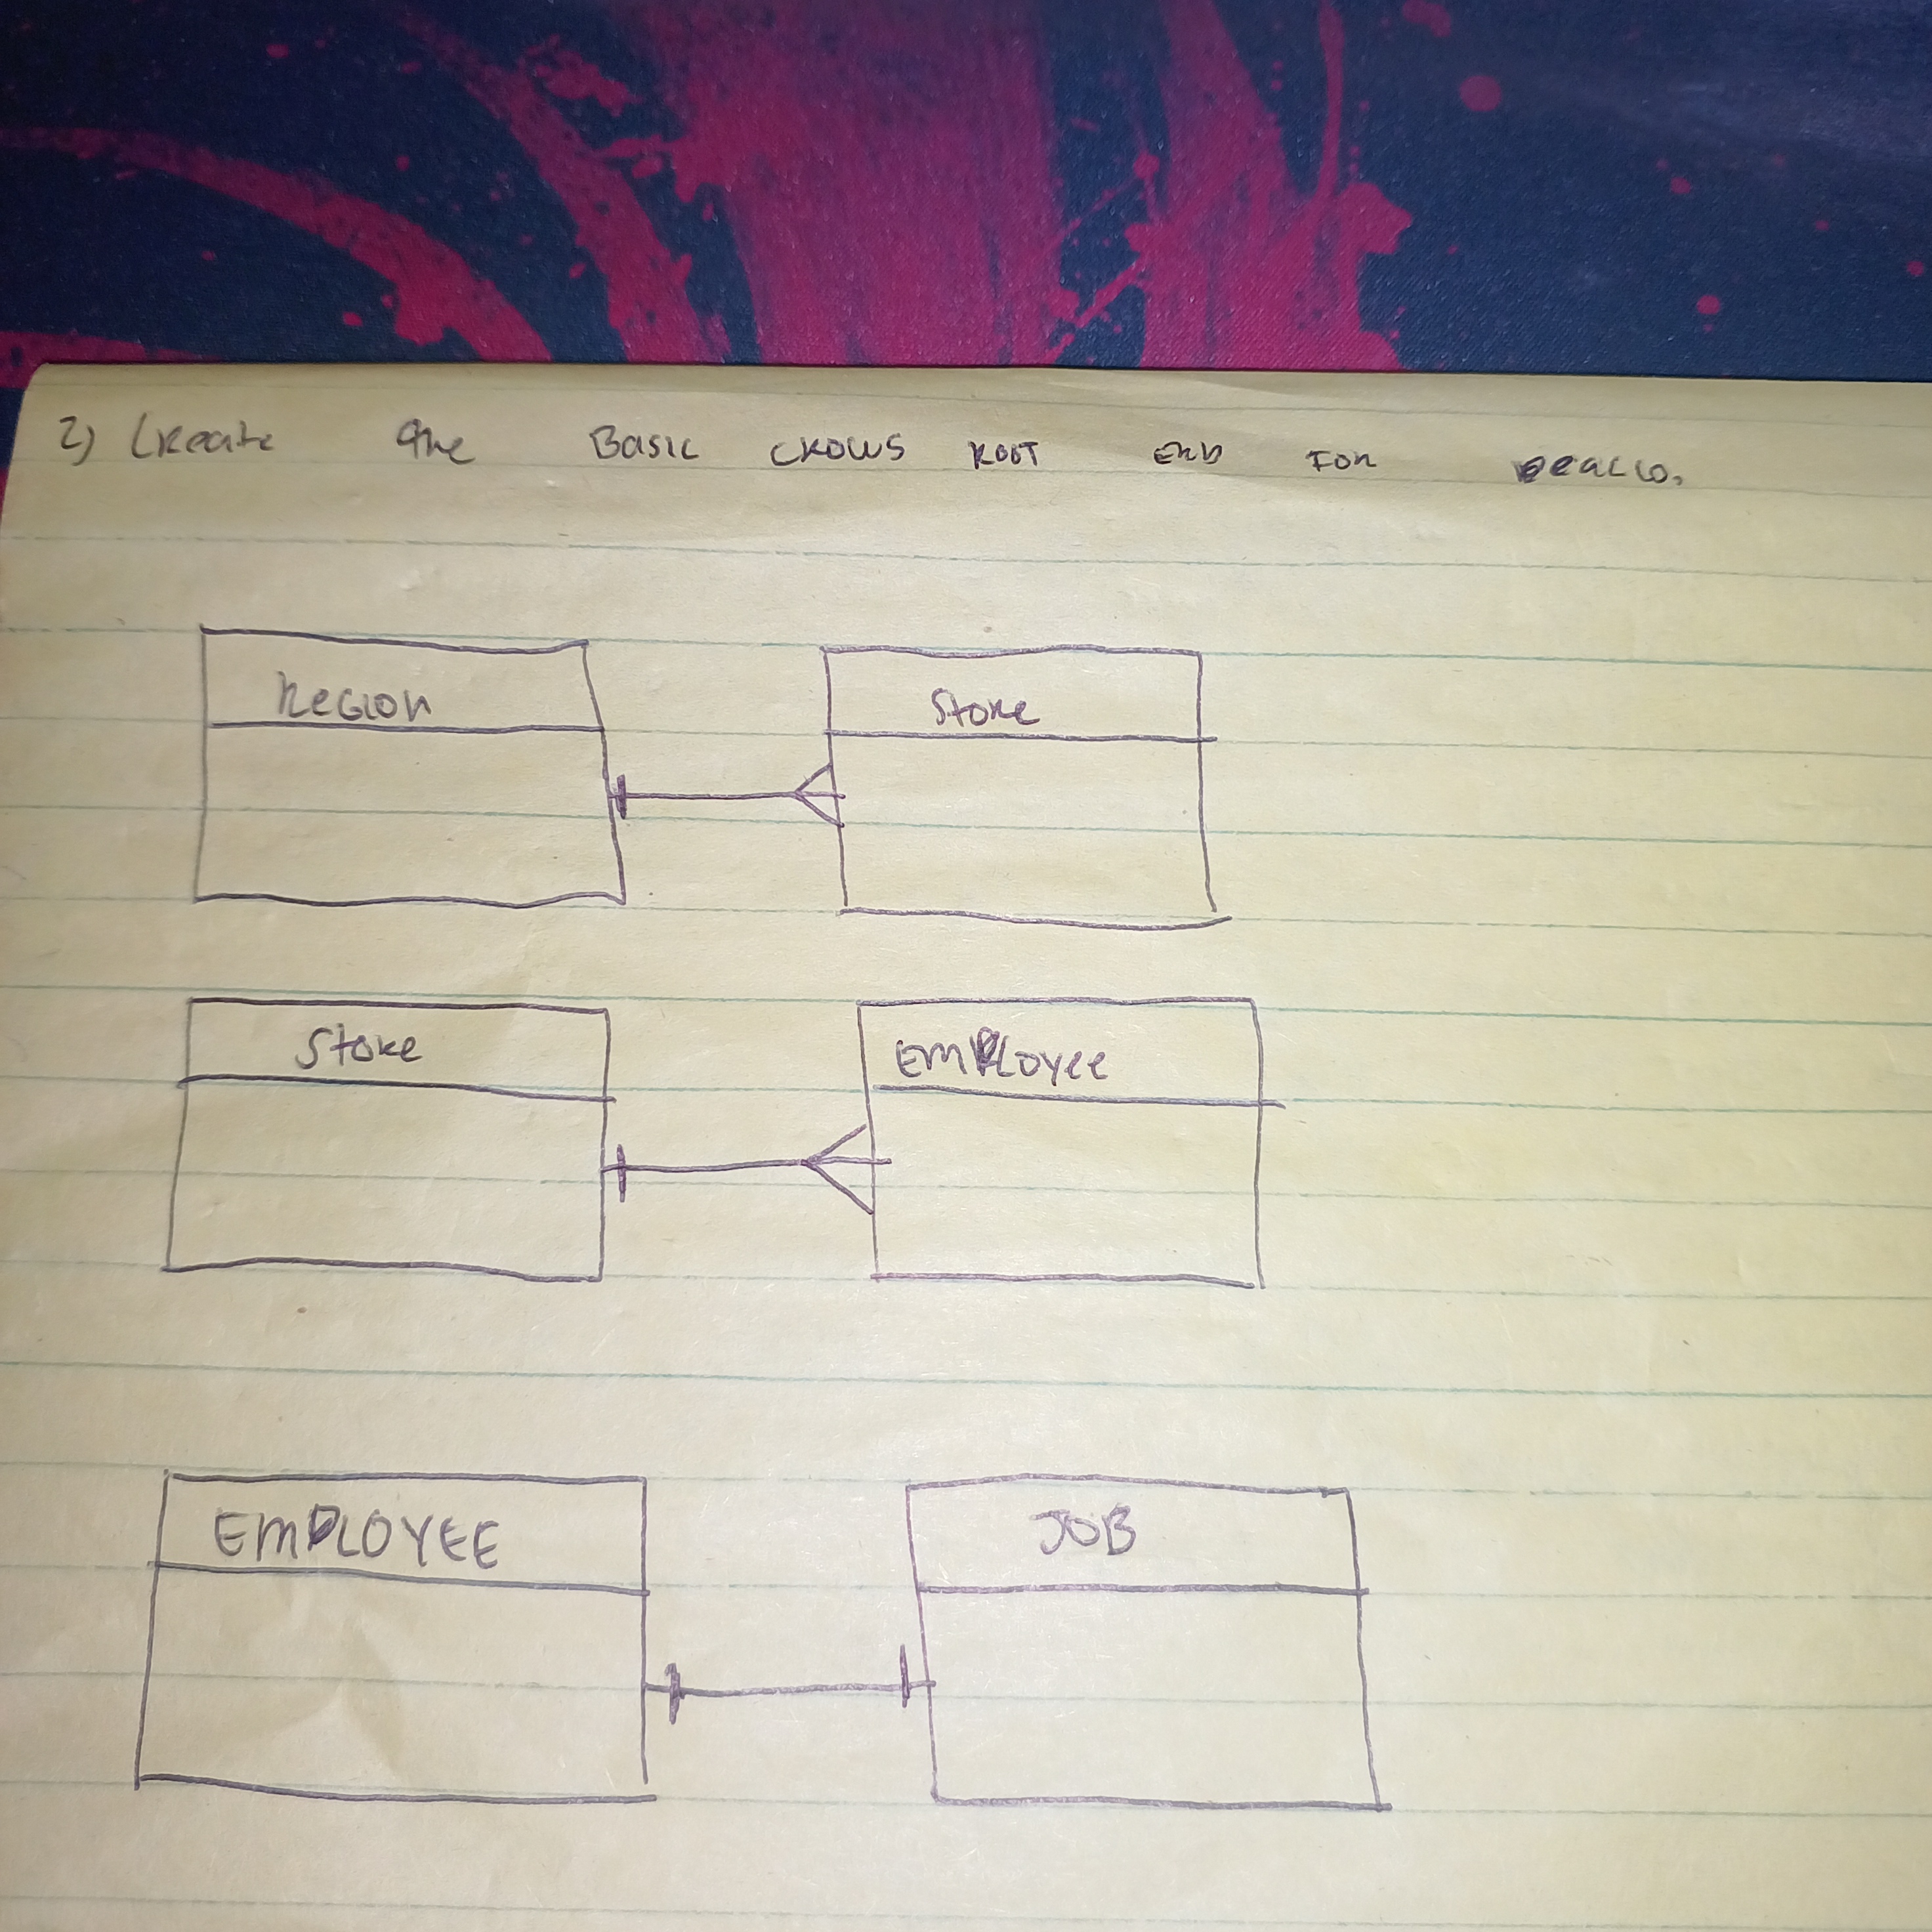 2) Create the Basic crows root ERD For DealCo.
Region
Store
Store
Employee
EMPLOYEE
JOB